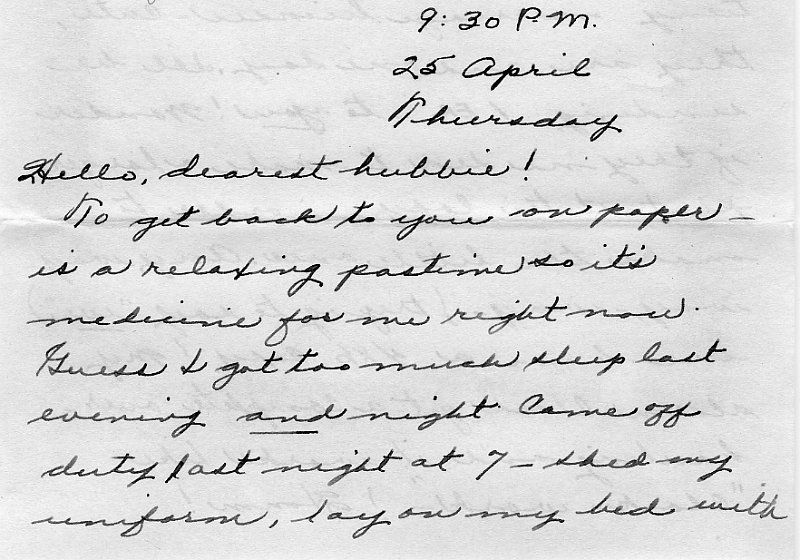 9:30 P.M.
25 April
Thursday
Hello, dearest hubbie!
To get back to you on paper –
is a relaxing pastime so it's
medicine for me right now.
Guess I got too much sleep last
evening and night. Came off
duty last night at 7 – shed my
uniform, lay on my bed with